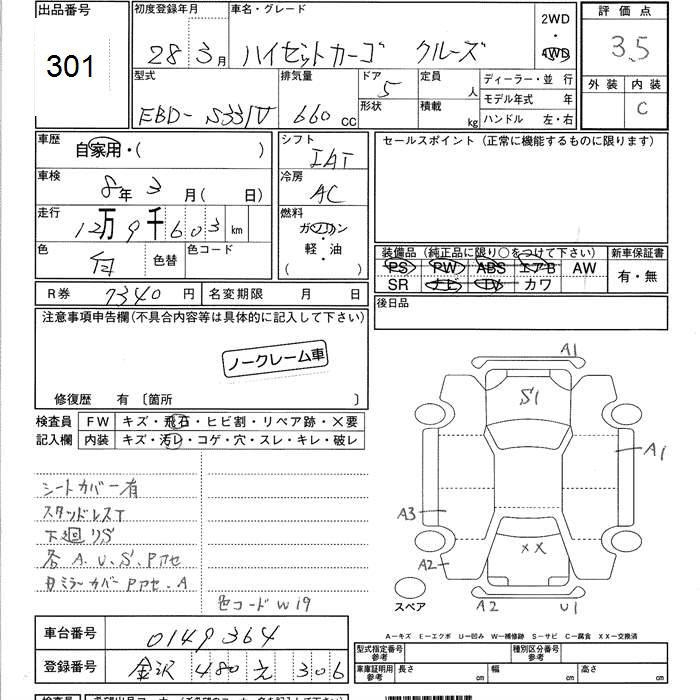 出品番号 301
初度登録年月 28 3月
車名・グレード ハイゼットカーゴ クルーズ
2WD・4WD
評価点 3.5
外装 内装 C
型式 EBD- S331V
排気量 660 cc
ドア 5
形状
定員 人
積載 kg
ディーラー・並 行
モデル年式 年
ハンドル 左・右
車歴 自家用・( )
シフト IAT
セールスポイント (正常に機能するものに限ります)
車検 8年 3月( 日)
冷房 AC
走行 12万9千603 km
燃料 ガソリン 軽・油 ( )
色 白 色替 色コード
装備品 (純正品に限り○をつけて下さい)
PS PW ABS エアB AW
SR ナビ TV カワ
新車保証書 有・無
R券 7340 円 名変期限 月 日
後日品
注意事項申告欄(不具合内容等は具体的に記入して下さい)
ノークレーム車
修復歴 有 〔箇所 〕
検査員記入欄
FW キズ・飛石・ヒビ割・リペア跡・×要
内装 キズ・汚レ・コゲ・穴・スレ・キレ・破レ
シートカバー有
スタッドレスT
下廻りS
各A.U.S.Pアセ
ミラーカバーPアセ.A
色コードW19
A1
S1
A1
A3
××
A2
A2
U1
スペア
A－キズ E－エクボ U－凹み W－補修跡 S－サビ C－腐食 XX－交換済
車台番号 0149364
登録番号 金沢 480 え 306
型式指定番号 参考
種別区分番号 参考
車庫証明用 参考 長さ cm 幅 cm 高さ cm